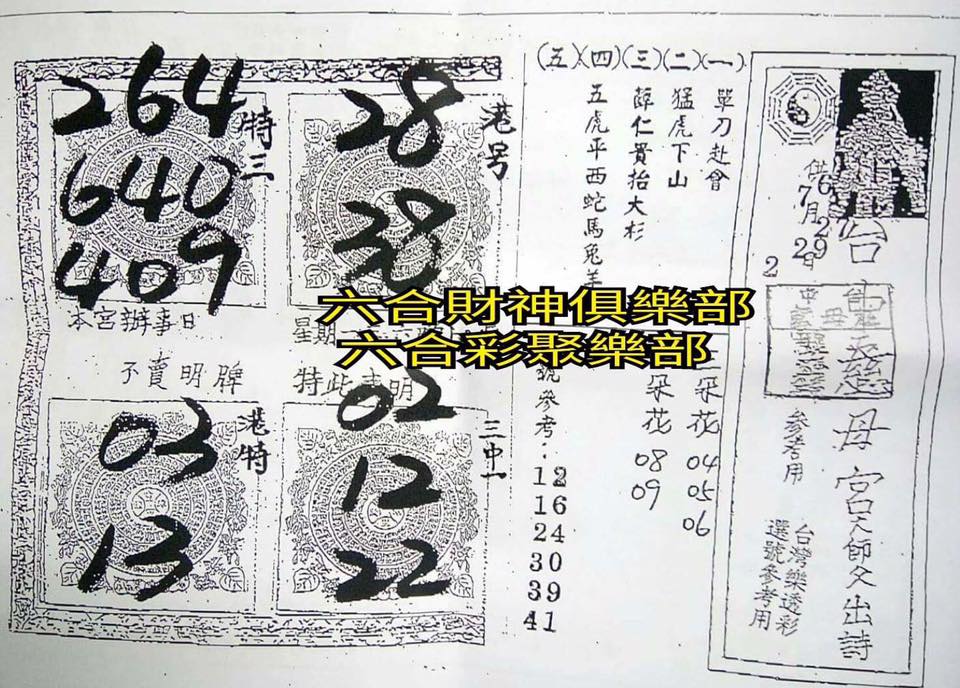 264
640
409
特三
28
38
港号
本宮辦事日
星期二
不賣明牌
特此声明
03
13
港特
02
12
22
三中一
(五)(四)(三)(二)(一)
單刀赴會
猛虎下山
薛仁貴抬大杉
五虎平西蛇馬兔羊
六合財神俱樂部
六合彩聚樂部
朵花 04 05 06
朵花 08 09
號參考:
12
16
24
30
39
41
供
7月
27
29日
2
參考用
母宮天師父出詩
台灣樂透彩
選號參考用